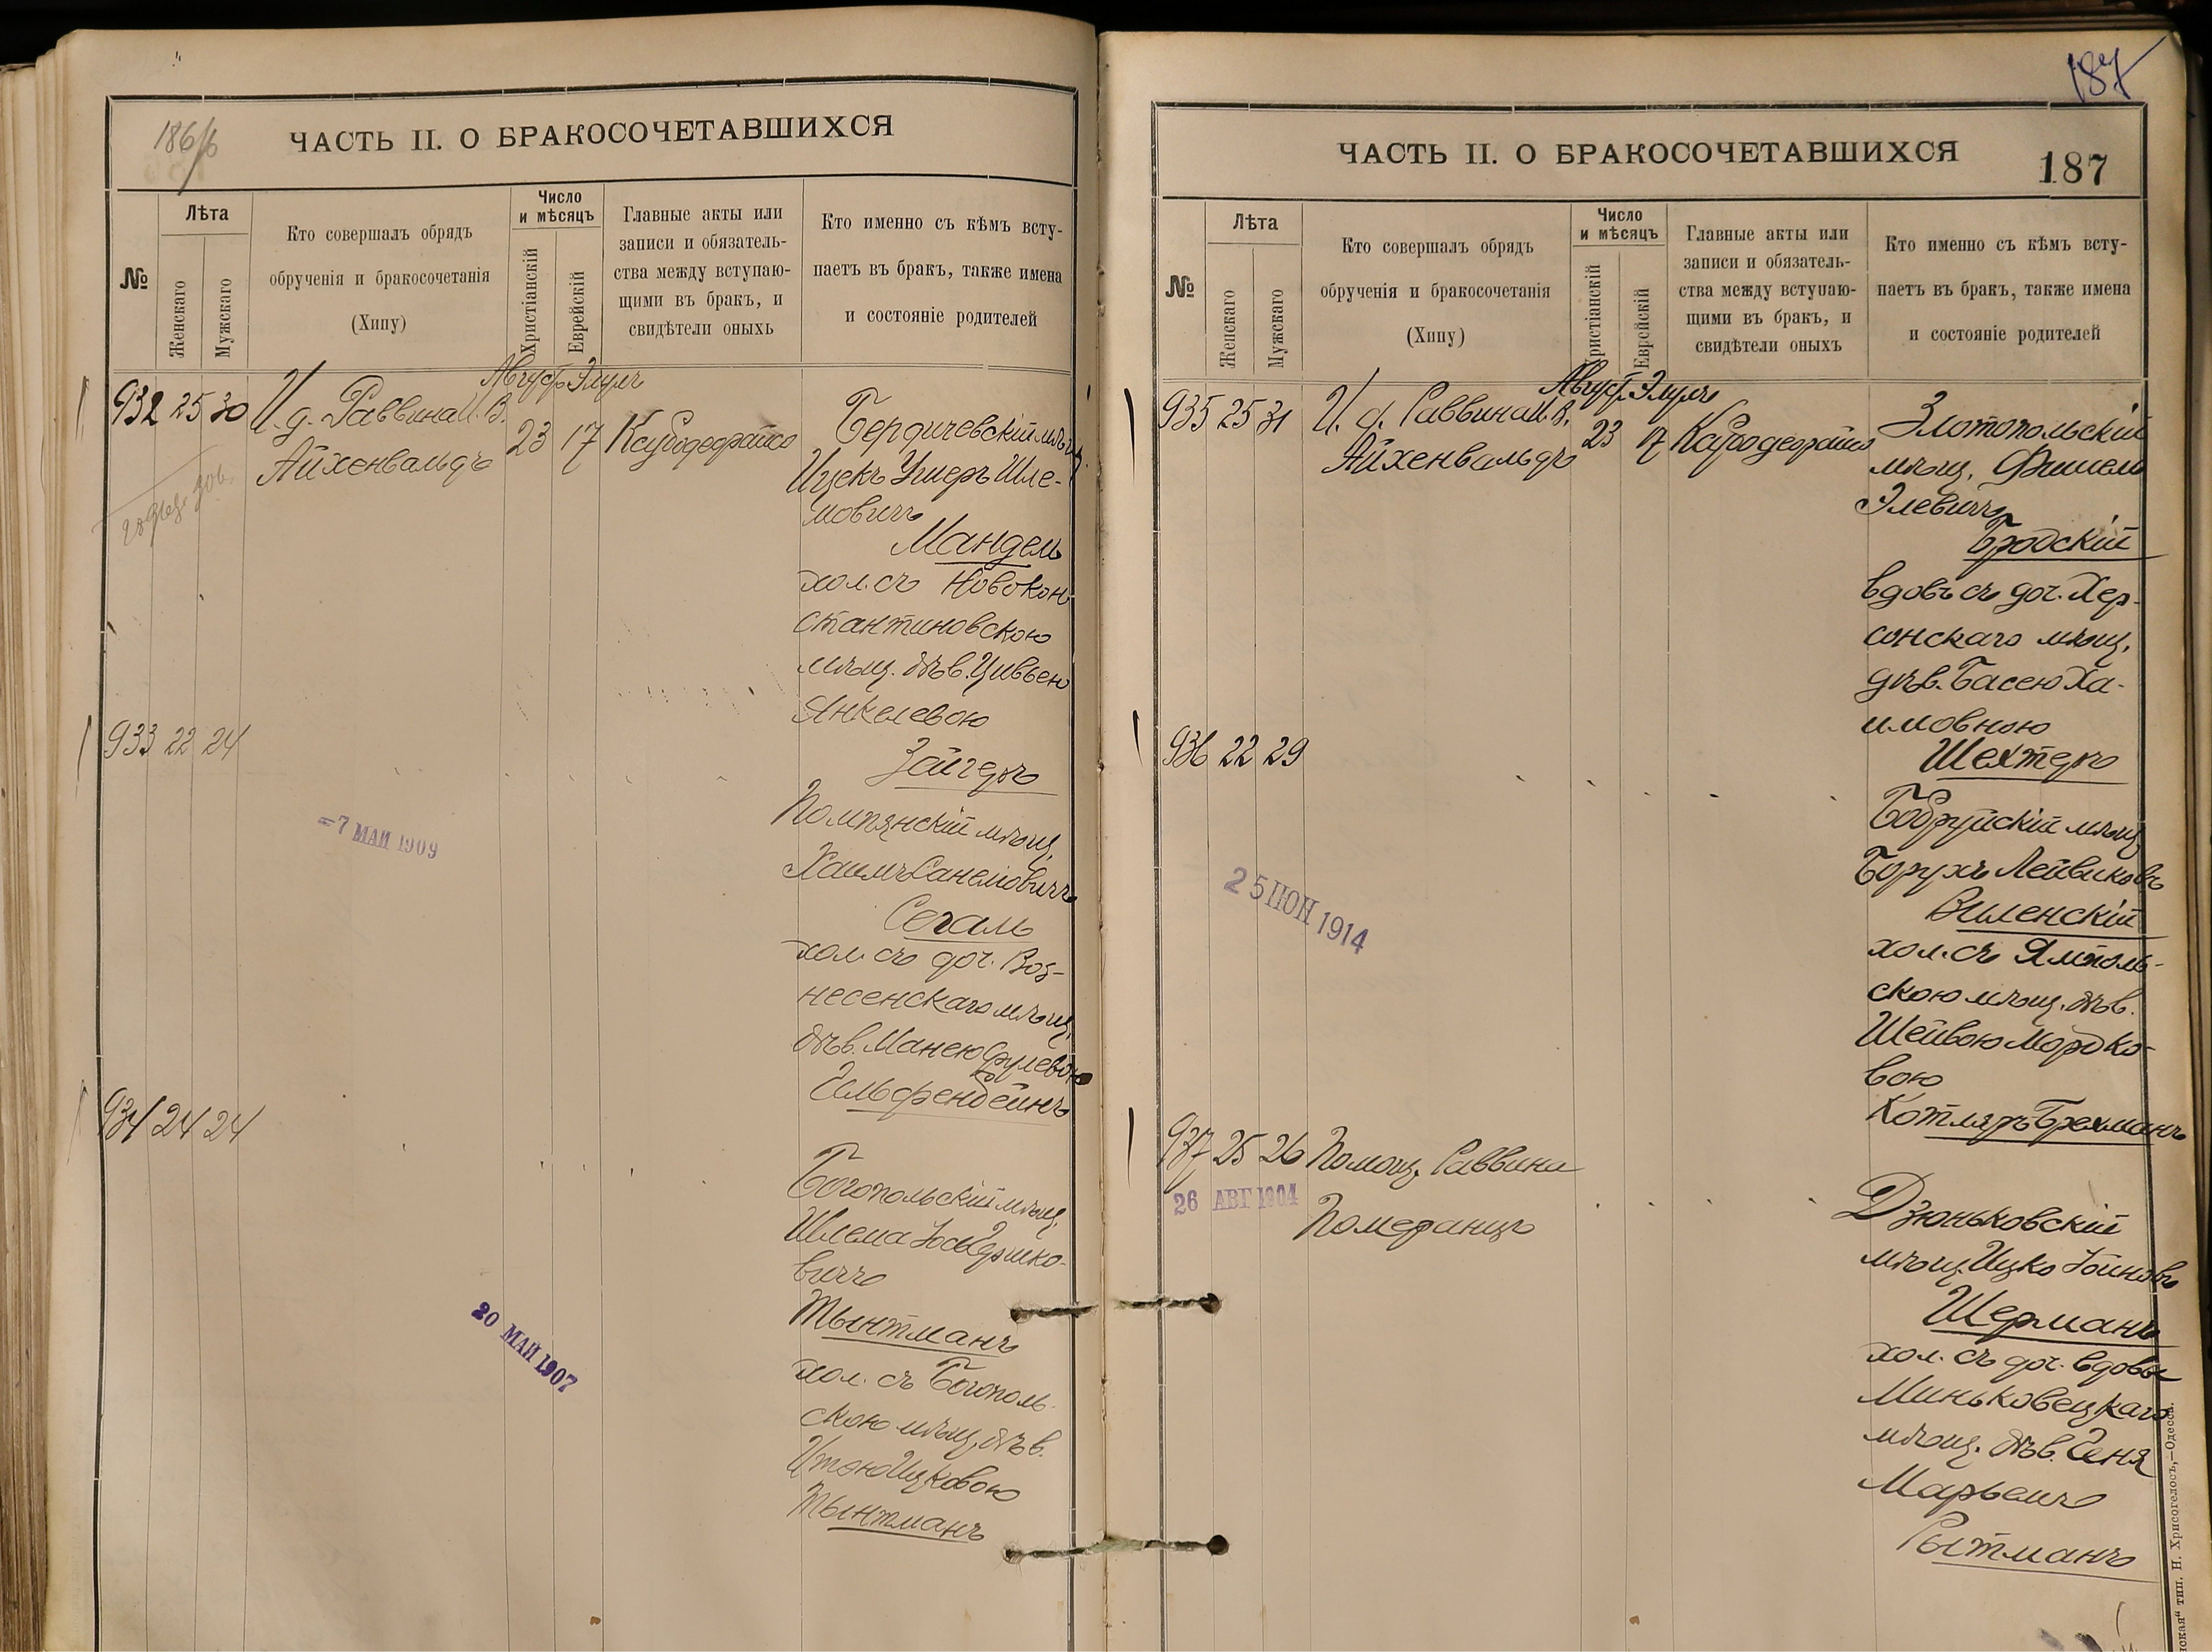 186/б
ЧАСТЬ II. О БРАКОСОЧЕТАВШИХСЯ
№
Лѣта
Женскаго
Мужскаго
Кто совершалъ обрядъ
обрученія и бракосочетанія
(Хипу)
Число
и мѣсяцъ
Христіанскій
Еврейскій
Главные акты или
записи и обязатель-
ства между вступаю-
щими въ бракъ, и
свидѣтели оныхъ
Кто именно съ кѣмъ всту-
паетъ въ бракъ, также имена
и состояніе родителей
Август. Элулъ
932 25 30 И. д. Раввина И. В.
Айхенвальдъ
23 17 Ксубодерайсо
Бердичевскій мѣщ.
Ицекъ Ушеръ Шле-
мовичъ
Мандель
хол. съ Новокон-
стантиновскою
мѣщ. дѣв. Цивьею
Янкелевою
Зайгеръ
933 22 24
=7 МАЙ 1909
Помпянскій мѣщ.
Хаимъ
Сегаль
хол. съ доч. Воз-
несенскаго мѣщ.
дѣв. Манею Срулевою
Гельфенбейнъ
934 24 24
20 МАЙ 1907
Богопольскій мѣщ.
Шлема Іось Гершко-
вичъ
Тынтманъ
хол. съ Богополь-
скою мѣщ. дѣв.
Итою Ицковою
Тынтманъ
187
ЧАСТЬ II. О БРАКОСОЧЕТАВШИХСЯ
187
№
Лѣта
Женскаго
Мужскаго
Кто совершалъ обрядъ
обрученія и бракосочетанія
(Хипу)
Число
и мѣсяцъ
Христіанскій
Еврейскій
Главные акты или
записи и обязатель-
ства между вступаю-
щими въ бракъ, и
свидѣтели оныхъ
Кто именно съ кѣмъ всту-
паетъ въ бракъ, также имена
и состояніе родителей
Август. Элулъ
935 25 31 И. д. Раввина И. В.
Айхенвальдъ
23 17 Ксубодерайсо
Златопольскій
мѣщ. Фишель
Элевичъ
Бродскій
вдовъ съ доч. Хер-
сонскаго мѣщ.
дѣв. Басею Ха-
имовною
Шехтеръ
936 22 29
25 ІЮН 1914
Бобруйскій мѣщ.
Борухъ Лейвиковъ
Виленскій
хол. съ Ямполь-
скою мѣщ. дѣв.
Шейвою Мордко-
вою
Котляръ-Брехманъ
937 25 26 Помощ. Раввина
Померанцъ
26 АВГ 1904
Дзюньковскій
мѣщ. Ицко Іойновъ
Шерманъ
хол. съ доч. вдовы
Миньковецкаго
мѣщ. дѣв. Геня
Марьемъ
Рытманъ
тип. Н. Хрисогелосъ,—Одесса.